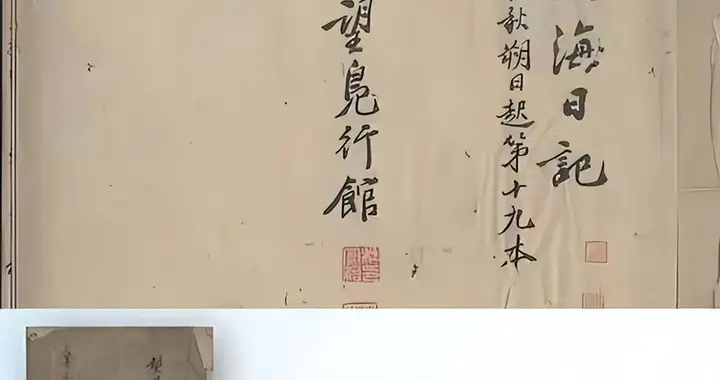 海日記
秋朔日起第十九本
望鳧行館